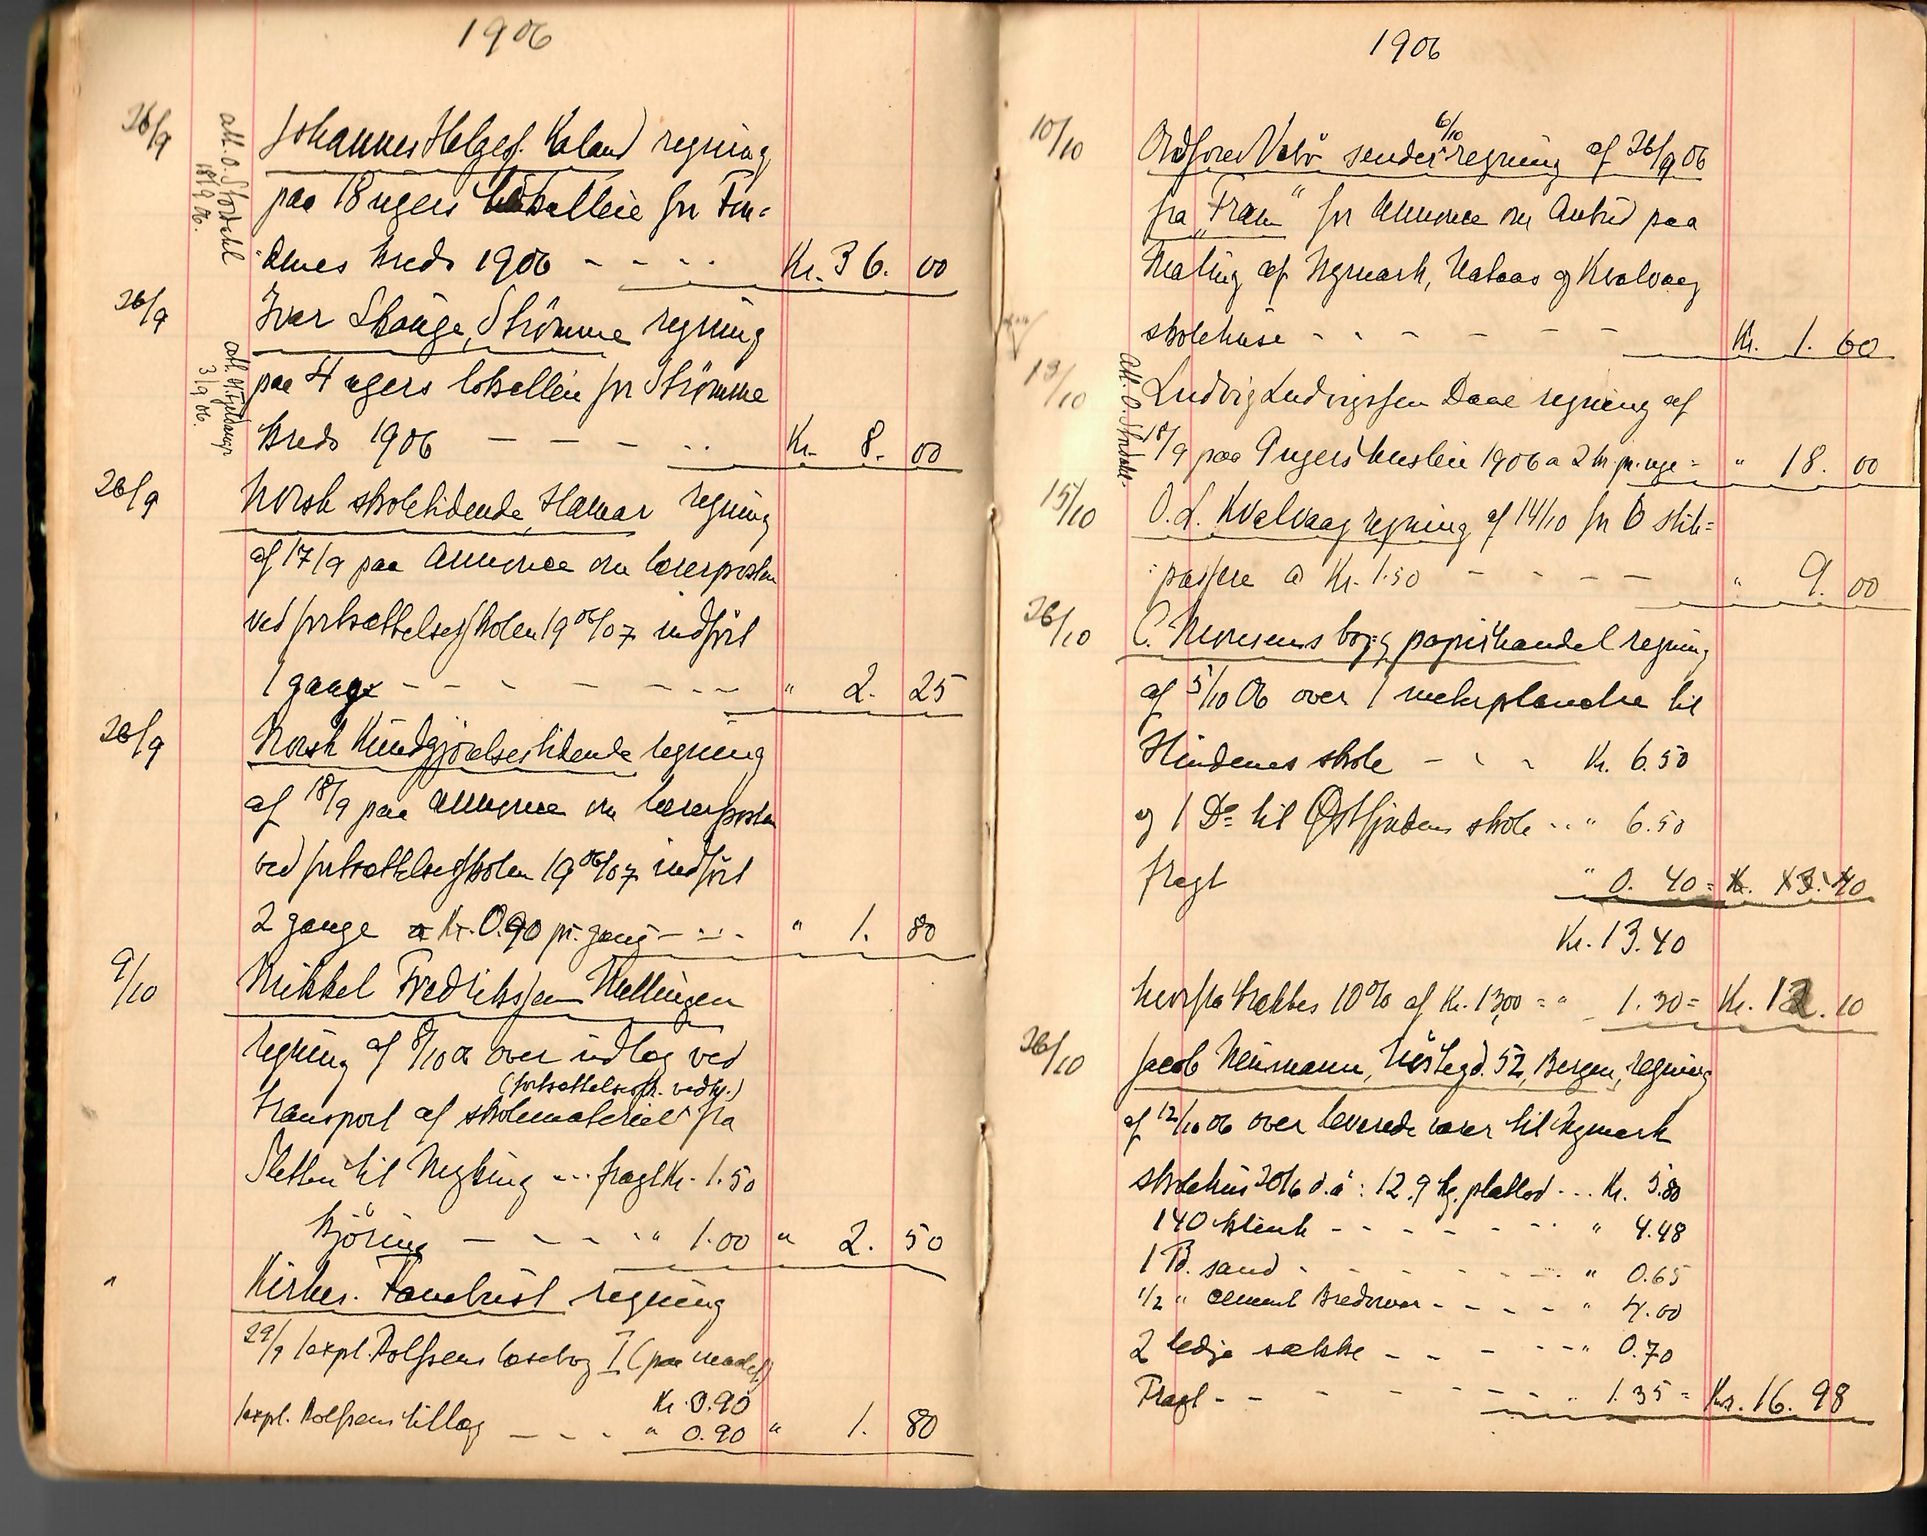 1906
26/9
att. O. Stordahl
18/9 06.
Johannes Helgesf. Kaland regning
paa 18 ugers lokalleie for Fin=
denes kreds 1906 - - - - Kr. 36. 00
26/9
att. H. Fjeldanger
3/9 06.
Ivar Skauge, Strømme regning
paa 4 ugers lokalleie for Strømme
kreds 1906 - - - - Kr. 8. 00
26/9
Norsk skoletidende, Hamar regning
af 17/9 paa annonce om lærerposten
ved fortsættelsesskolen 1906/07 indført
1 gang - - - - - - - " 2. 25
26/9
Norsk Kundgjørelsestidende regning
af 18/9 paa annonce om lærerposten
ved fortsættelsesskolen 1906/07 indført
2 gange a Kr. 0.90 pr. gang - - - " 1. 80
9/10
Mikkel Fredrikssen Mellingen
regning af 8/10 06 over udlæg ved
(fortsættelsessk. vedk.)
transport af skolemateriel fra
Sletten til Nyking ... fragt Kr. 1.50
kjøring - - - - " 1.00 " 2. 50
"
Kirkes. Fanebust regning
29/9 1 expl. Rolfsens læsebog I (paa maalet)
Kr. 0.90
1 expl. Rolfsens tillæg - - - " 0.90 " 1. 80
1906
10/10
6/10
Ordfører Valø sender regning af 26/9 06
fra "Fram" for annonce om Anbud paa
Maling af Nymark, Aataas og Kvalvaag
skolehuse - - - - - - Kr. 1. 60
13/10
att. O. Stordahl.
Ludvig Ludvigssen Daae regning af
18/9 paa 9 ugers husleie 1906 a 2 kr. pr. uge = " 18. 00
15/10
O. L. Kvalvaag regning af 14/10 for 6 stik=
passere a Kr. 1.50 - - - - " 9. 00
26/10
C. Monsens bog- & papirhandel regning
af 5/10 06 over 1 melkeplanche til
Hindenes skole - - - Kr. 6.50
og 1 Do til Østfjordens skole .. " 6.50
fragt " 0. 40 = Kr. 13. 40
Kr. 13.40
hvorfra trækkes 10% af Kr. 13,00 = " 1.30 = Kr. 12. 10
26/10
Jacob Neumann, Nøstegd. 52, Bergen, regning
af 12/10 06 over leverede varer til Nymark
skolehus 20/6 d.a: 12.9 kg. platlod ... Kr. 5.80
140 klink - - - - - - - " 4.48
1 Td. sand - - - - - - - " 0.65
1/2 " cement Bredevar - - - - " 4.00
2 ledige sække - - - - - " 0.70
Fragt - - - - - - - " 1.35 = Kr. 16. 98